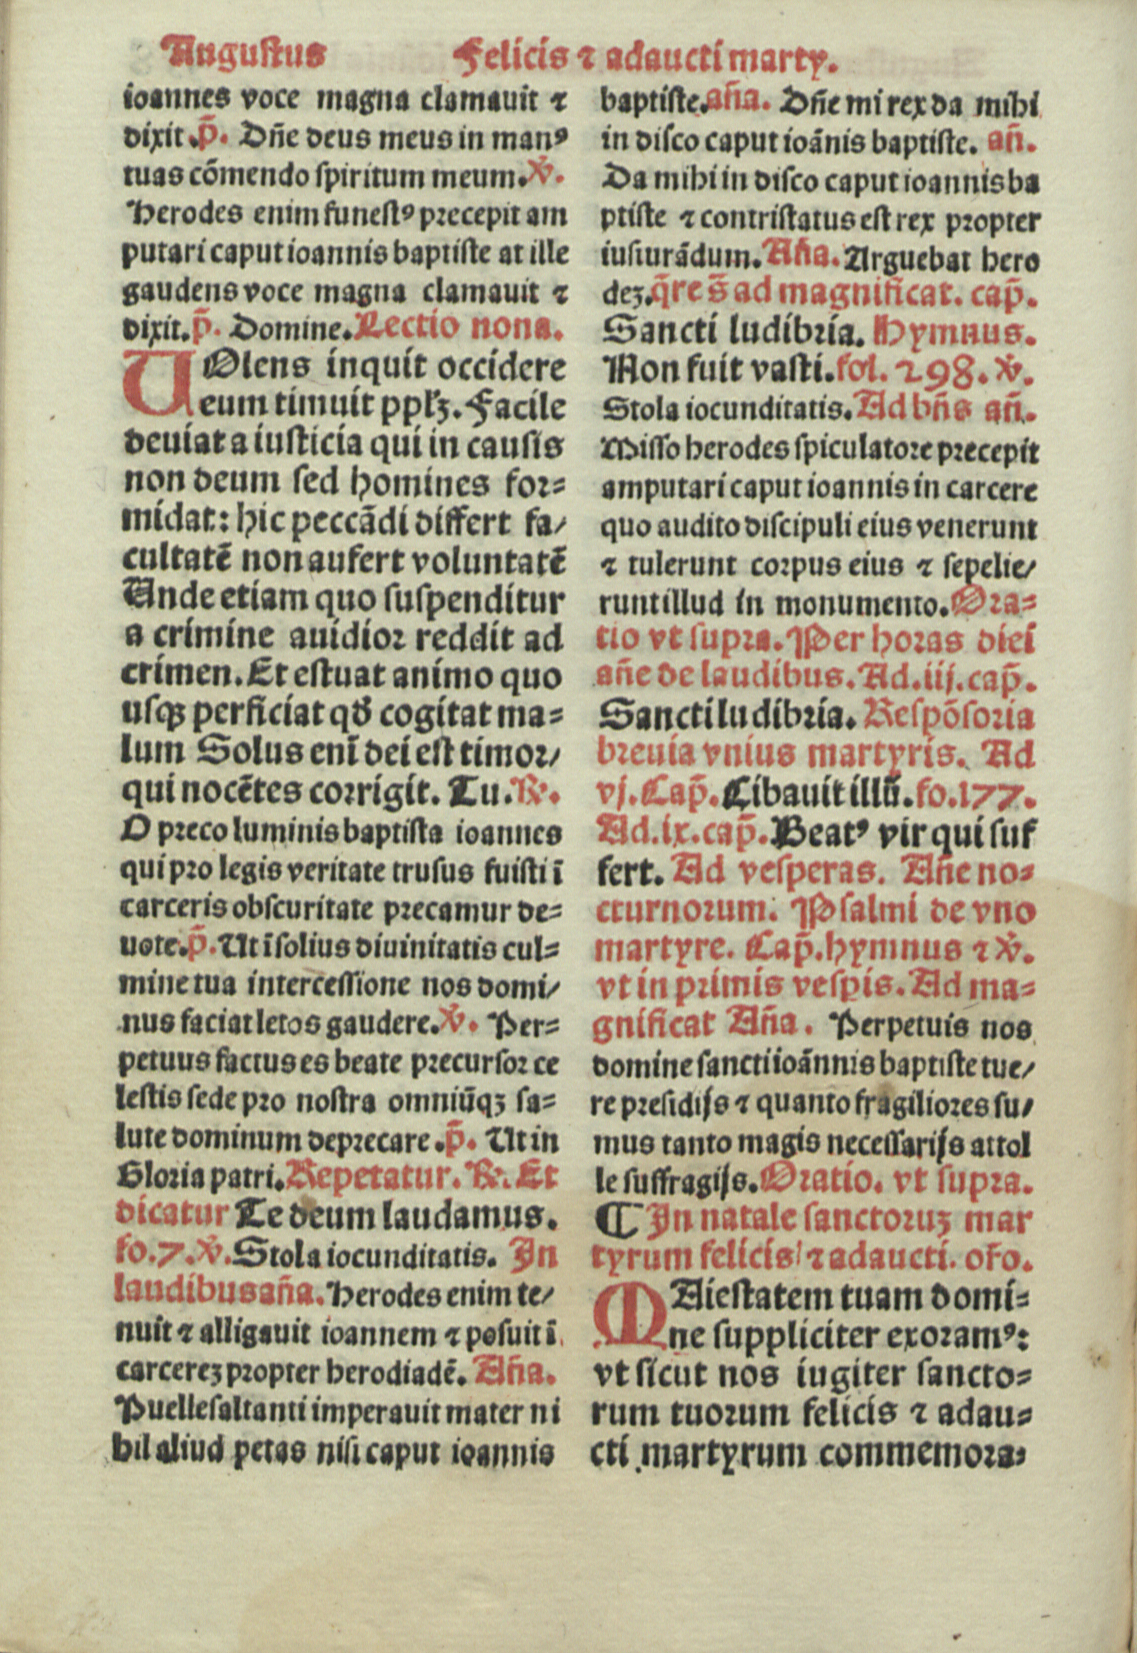 Augustus Felicis ⁊ adaucti marty.
ioannes voce magna clamauit ⁊
dixit.p̄. Dn̄e deus meus in manꝰ
tuas cōmendo spiritum meum.℣.
Herodes enim funestꝰ precepit am
putari caput ioannis baptiste at ille
gaudens voce magna clamauit ⁊
dixit.p̄. Domine. Lectio nona.
VOlens inquit occidere
eum timuit pplꝫ. Facile
deuiat a iusticia qui in causis
non deum sed homines for=
midat: hic peccādi differt fa/
cultatē non aufert voluntatē
Unde etiam quo suspenditur
a crimine auidior reddit ad
crimen. Et estuat animo quo
usqꝫ perficiat qđ cogitat ma=
lum Solus enī dei est timor/
qui nocētes corrigit. Tu. ℟.
O preco luminis baptista ioannes
qui pro legis veritate trusus fuisti ī
carceris obscuritate precamur de=
uote.p̄. Ut ī solius diuinitatis cul=
mine tua intercessione nos domi/
nus faciat letos gaudere.℣. Per=
petuus factus es beate precursor ce
lestis sede pro nostra omniūqꝫ sa=
lute dominum deprecare.p̄. Ut in
Gloria patri. Repetatur. ℟. Et
dicatur Te deum laudamus.
fo.7.℣. Stola iocunditatis. In
laudibus an̄a. Herodes enim te/
nuit ⁊ alligauit ioannem ⁊ posuit ī
carcereꝫ propter herodiadē. An̄a.
Puelle saltanti imperauit mater ni
hil aliud petas nisi caput ioannis
baptiste. an̄a. Dn̄e mi rex da mihi
in disco caput ioānis baptiste. an̄.
Da mihi in disco caput ioannis ba
ptiste ⁊ contristatus est rex propter
iusiurādum. An̄a. Arguebat hero
deꝫ. q̄re s̄ ad magnificat. cap̄.
Sancti ludibria. Hymnus.
Non fuit vasti. fol. 298. ℣.
Stola iocunditatis. Ad bn̄s an̄.
Misso herodes spiculatore precepit
amputari caput ioannis in carcere
quo audito discipuli eius venerunt
⁊ tulerunt corpus eius ⁊ sepelie/
runt illud in monumento. Ora=
tio vt supra. Per horas diei
an̄e de laudibus. Ad.iij.cap̄.
Sancti ludibria. Respōsoria
breuia vnius martyris. Ad
vj. Cap̄. Cibauit illū. fo.177.
Ad.ix.cap̄. Beatꝰ vir qui suf
fert. Ad vesperas. An̄e no=
cturnorum. Psalmi de vno
martyre. Cap̄. hymnus ⁊ ℣.
vt in primis vesꝑis. Ad ma=
gnificat An̄a. Perpetuis nos
domine sancti ioānnis baptiste tue/
re presidijs ⁊ quanto fragiliores su/
mus tanto magis necessarijs attol
le suffragijs. Oratio. vt supra.
¶ In natale sanctoruꝫ mar
tyrum felicis ⁊ adaucti. oro.
MAiestatem tuam domi=
ne suppliciter exoramꝰ:
vt sicut nos iugiter sancto=
rum tuorum felicis ⁊ adau=
cti martyrum commemora=